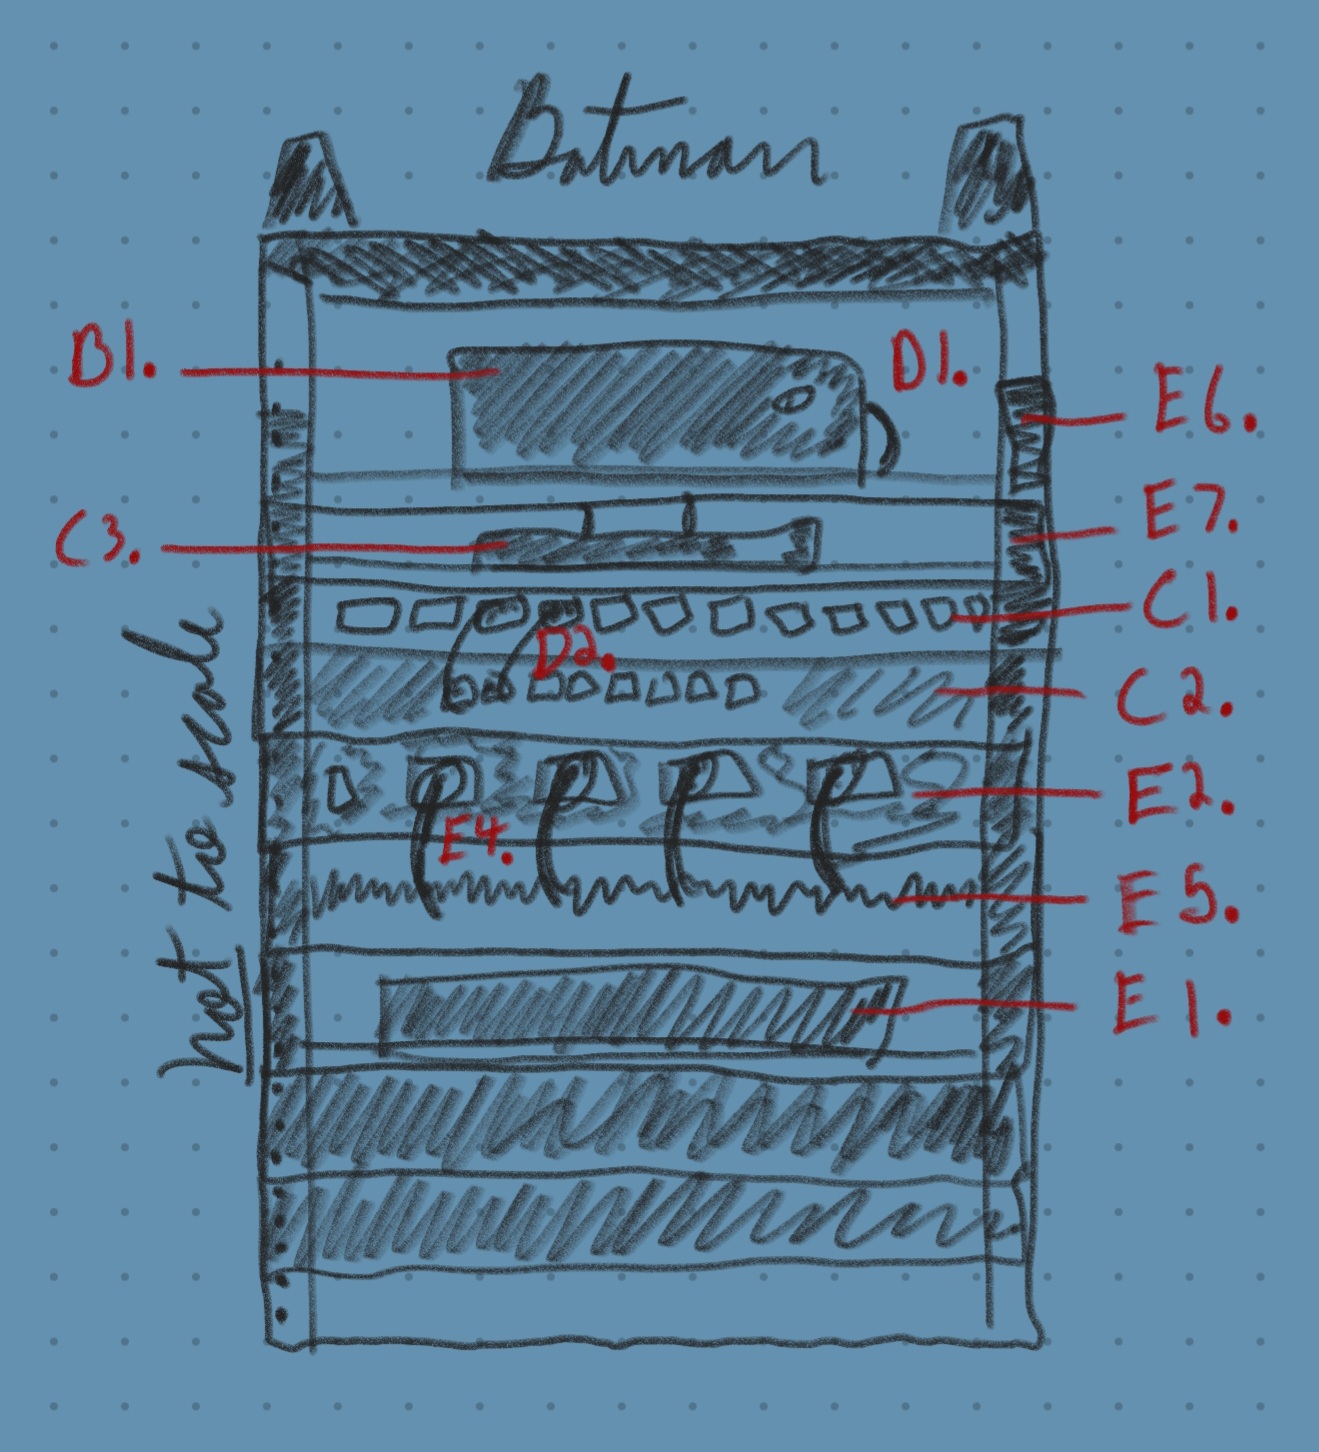 Batman
B1.
D1.
E6.
E7.
C3.
C1.
D2.
C2.
E2.
E4.
E5.
E1.
not to scale